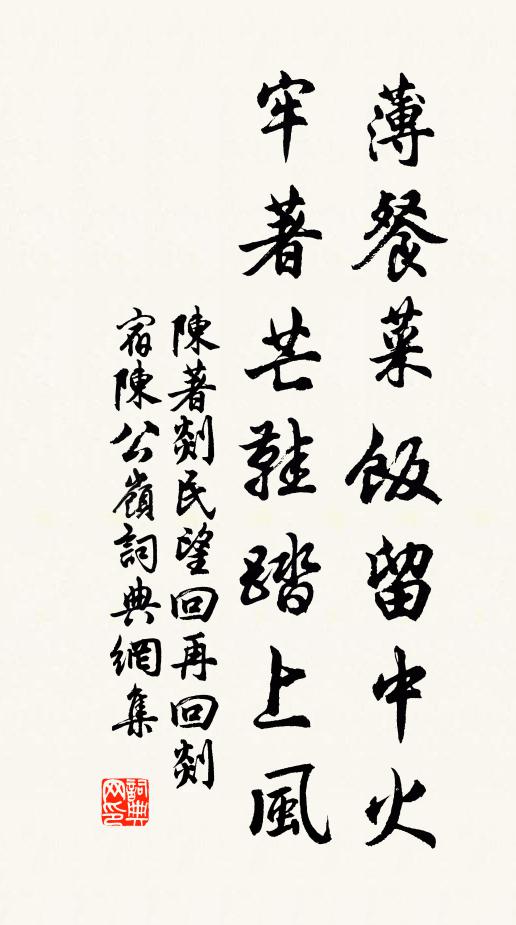 薄餐菜飯留中火
牢著芒鞋踏上風
陳著剡民望回再回剡
宿陳公嶺詞典網集
詞典网印